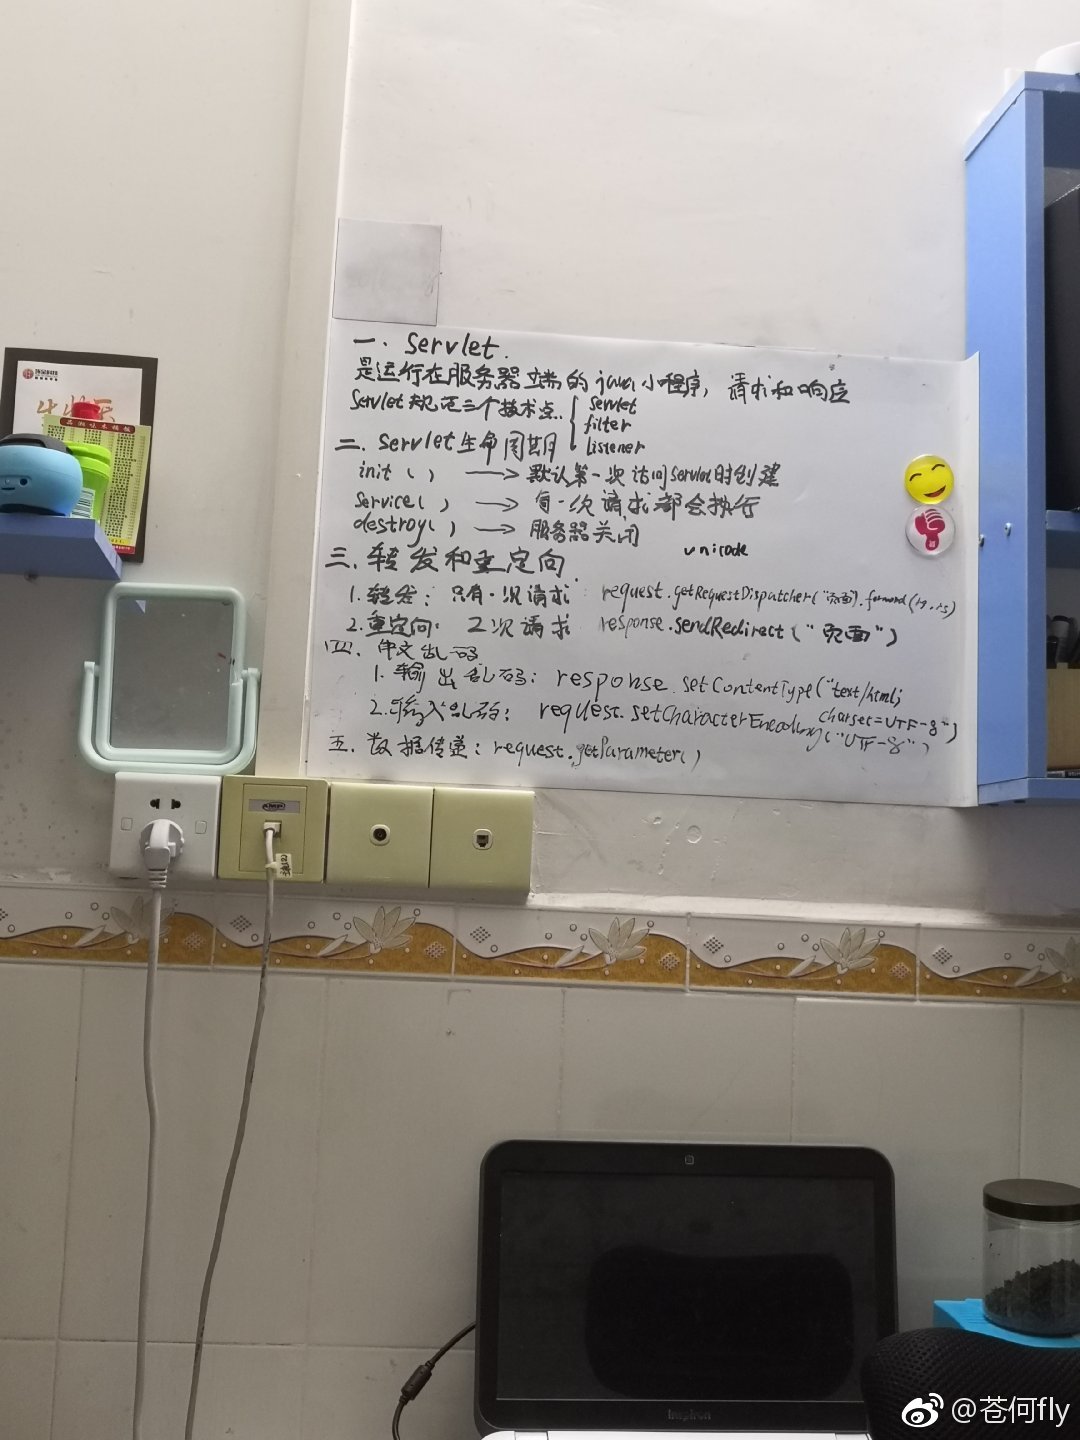 一. Servlet.
是运行在服务器端的java小程序, 请求和响应
Servlet规范三个技术点 { servlet
filter
listener
二. Servlet生命周期
init () → 默认第一次访问servlet时创建
service() → 每一次请求都会执行
destroy() → 服务器关闭
unicode
三. 转发和重定向
1. 转发: 只有一次请求 request.getRequestDispatcher("页面").forward(
2. 重定向: 2次请求 response.sendRedirect("页面")
四. 中文乱码
1. 输出乱码: response.setContentType("text/html;
charset=UTF-8")
2. 输入乱码: request.setCharacterEncoding("UTF-8")
五. 数据传递: request.getParameter()
AMP
Inspiron
@苍何fly